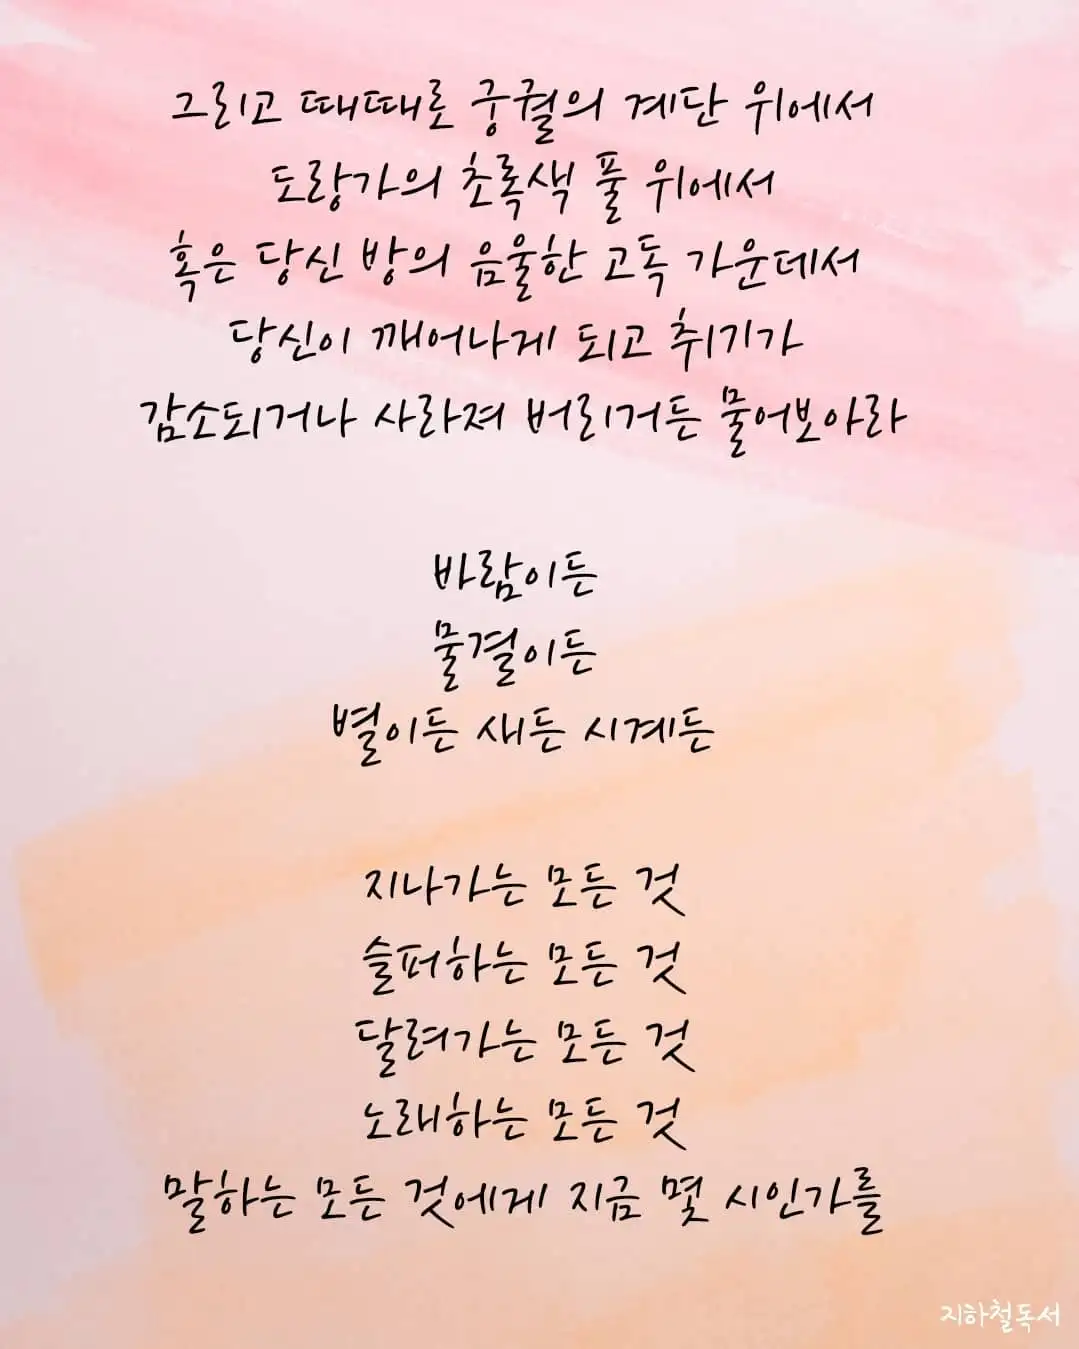 그리고 때때로 궁궐의 계단 위에서
도랑가의 초록색 풀 위에서
혹은 당신 방의 음울한 고독 가운데서
당신이 깨어나게 되고 취기가
감소되거나 사라져 버리거든 물어보아라
바람이든
물결이든
별이든 새든 시계든
지나가는 모든 것
슬퍼하는 모든 것
달려가는 모든 것
노래하는 모든 것
말하는 모든 것에게 지금 몇 시인가를
지하철독서